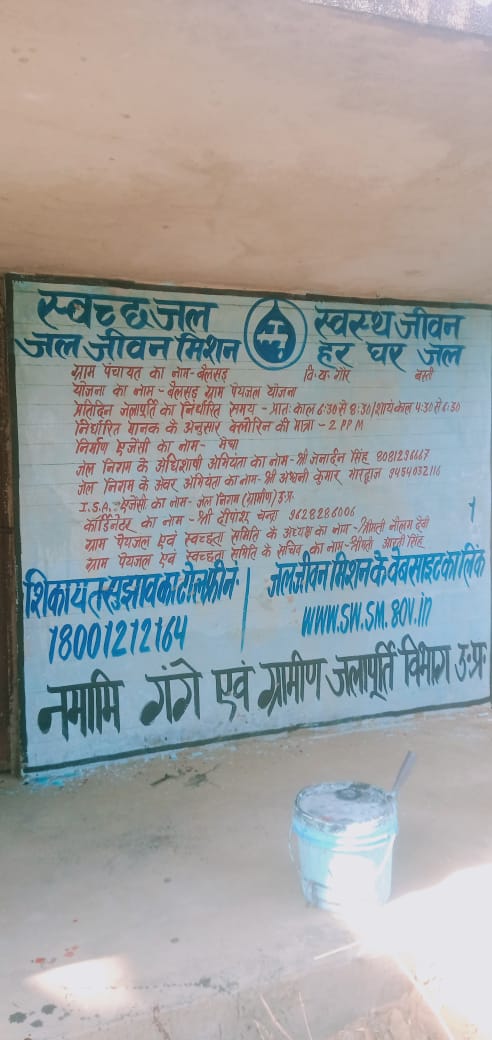 स्वच्छ जल स्वस्थ जीवन
जल जीवन मिशन हर घर जल
ग्राम पंचायत का नाम- बैलसड़ वि.ख. गौर बस्ती
योजना का नाम - बैलसड़ ग्राम पेयजल योजना
प्रतिदिन जलापूर्ति का निर्धारित समय - प्रातः काल 6:30 से 8:30/शायंकाल 4:30 से 6:30
निर्धारित मानक के अनुसार क्लोरिन की मात्रा - 2 PPM
निर्माण एजेंसी का नाम- मेघा
जल निगम के अधिशाषी अभियंता का नाम- श्री जनार्दन सिंह
जल निगम के अवर अभियंता का नाम- श्री अश्वनी कुमार भारद्वाज 9454032116
I.S.A. एजेंसी का नाम- जल निगम (ग्रामीण) उ.प्र.
कॉर्डिनेटर का नाम - श्री दीपांशु चन्द्रा 9628286006
ग्राम पेयजल एवं स्वच्छता समिति के अध्यक्ष का नाम - श्रीमती नीलम देवी
ग्राम पेयजल एवं स्वच्छता समिति के सचिव का नाम- श्रीमती आरती सिंह
शिकायत सुझाव का टोल फ्रीनं जल जीवन मिशन के वेबसाइट का लिंक
18001212164 www.sw.sm.gov.in
नमामि गंगे एवं ग्रामीण जलापूर्ति विभाग उ.प्र.